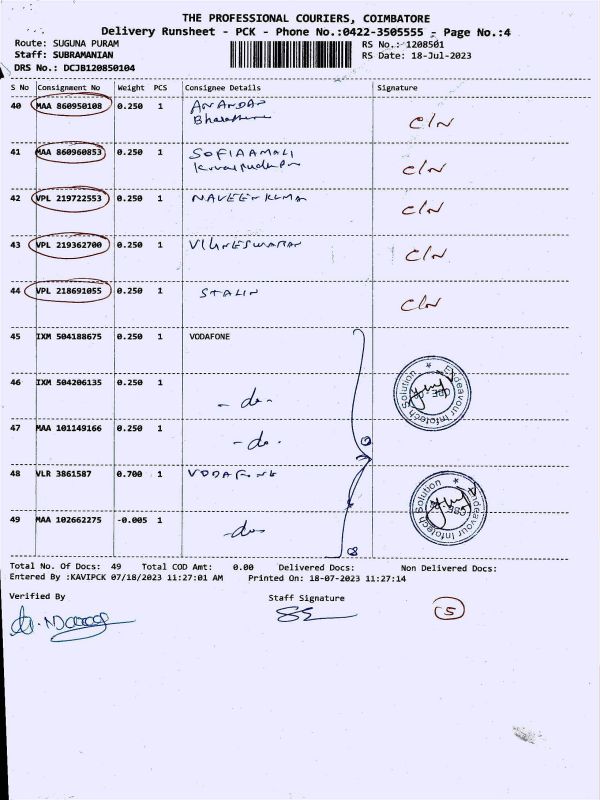 THE PROFESSIONAL COURIERS, COIMBATORE
Delivery Runsheet - PCK - Phone No.:0422-3505555 - Page No.:4
Route: SUGUNA PURAM
RS No.: 1208501
Staff: SUBRAMANIAN
RS Date: 18-Jul-2023
DRS No.: DCJB120850104
S No Consignment No Weight PCS Consignee Details Signature
40 MAA 860950108 0.250 1 ANANDAN C/N
41 MAA 860960853 0.250 1 SOFIAAMALI C/N
42 VPL 219722553 0.250 1 NAVEEN KUMAR C/N
43 VPL 219362700 0.250 1 VIGNESWARAN C/N
44 VPL 218691055 0.250 1 STALIN C/N
45 IXM 504188675 0.250 1 VODAFONE
46 IXM 504206135 0.250 1 - do -
Endeavour Infotech Solution *
47 MAA 101149166 0.250 1 - do -
48 VLR 3861587 0.700 1 VODAFONE
49 MAA 102662275 -0.005 1 - do -
Endeavour Infotech Solution *
CBE
Total No. Of Docs: 49 Total COD Amt: 0.00 Delivered Docs: Non Delivered Docs:
Entered By :KAVIPCK 07/18/2023 11:27:01 AM Printed On: 18-07-2023 11:27:14
Verified By Staff Signature
5